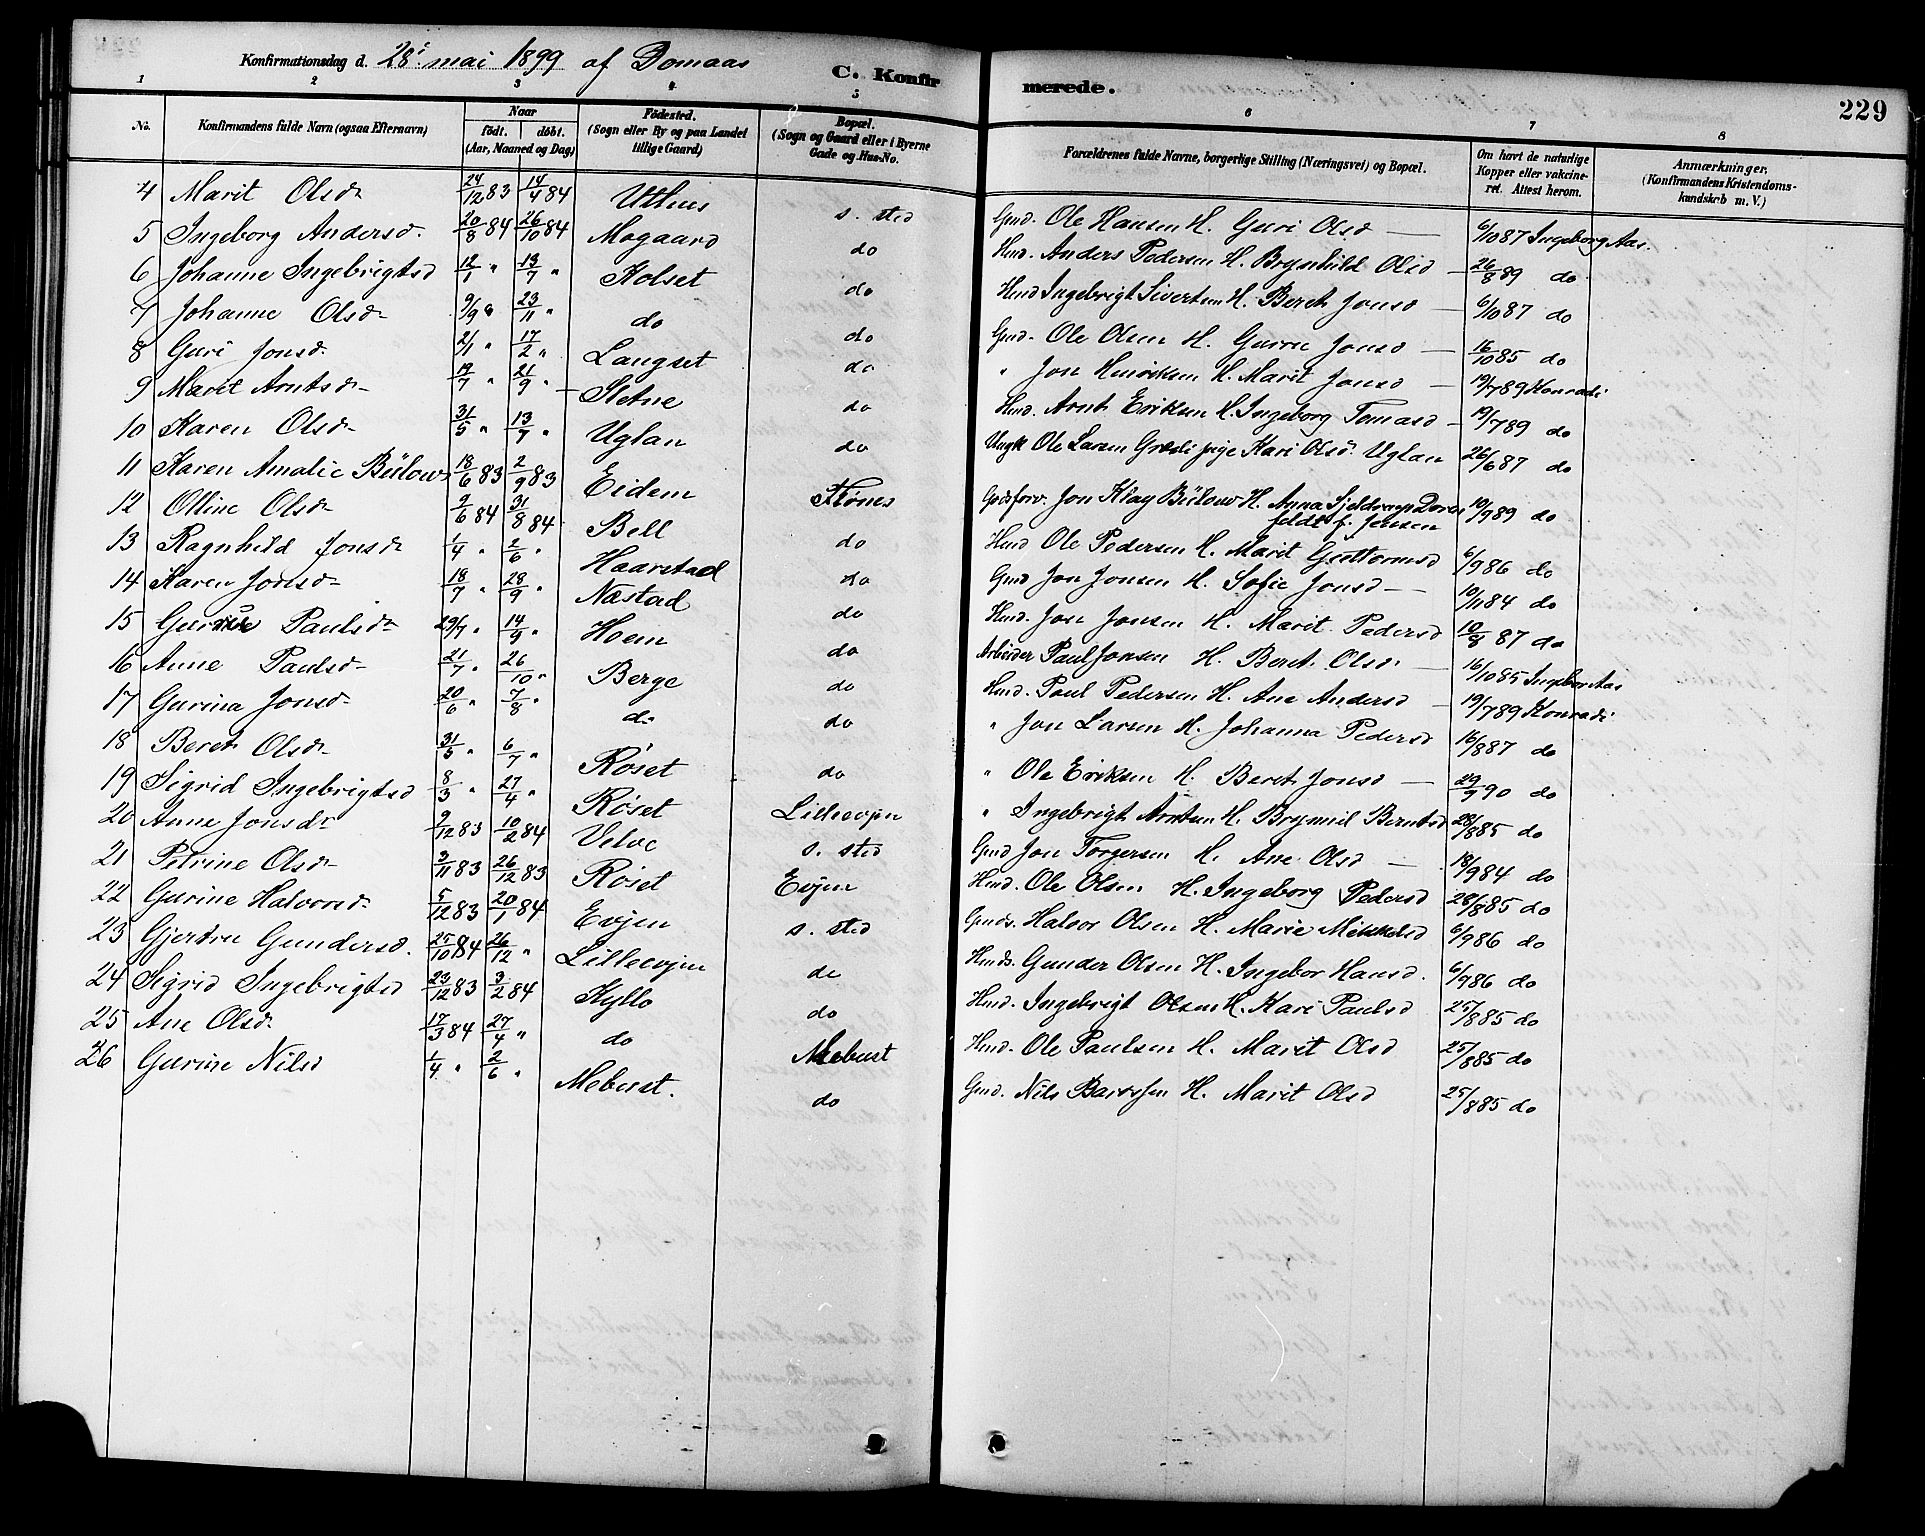 Konfirmationsdag d. 28de mai 1899 af Domaas C. Konfirmerede. 229
1 2 3 4 5 6 7 8
No. Konfirmandens fulde Navn (ogsaa Efternavn) Naar født. døbt. (Aar, Maaned og Dag) Fødested. (Sogn eller By og paa Landet tillige Gaard) Bopæl. (Sogn og Gaard eller i Byerne Gade og Hus-No. Forældrenes fulde Navne, borgerlige Stilling (Næringsvei) og Bopæl. Om havt de naturlige Kopper eller vakcineret. Attest herom. Anmærkninger. (Konfirmandens Kristendomskundskab m. V.)
4 Marit Olsd 24/12 83 14/4 84 Uthus s. sted Gmd. Ole Hansen H. Guri Olsd 6/10 87 Ingeborg Aas.
5 Ingeborg Andersd. 20/8 84 26/10 84 Mogaard do Hmd. Anders Pedersen H. Brynhild Olsd 26/8 89 do
6 Johanne Ingebrigtsd 12/7 " 13/7 " Kolset do Hmd Ingebrigt Sivertsen H. Beret Jonsd 6/10 87 do
7 Johanne Olsd 9/9 " 23/11 " do do Gmd. Ole Olsen H. Gurru Jonsd 16/10 85 do
8 Guri Jonsd. 2/1 " 17/2 " Langset do " Jon Henriksen H. Marit Jonsd 19/7 89 Konradi
9 Marit Arntsd 19/7 " 21/9 " Sletne do Hmd. Arnt Eriksen H. Ingeborg Tomasd 19/7 89 do
10 Karen Olsd 31/5 " 13/7 " Uglan do Ungk Ole Larsen Grøtli pige Kari Olsd Uglan 26/6 87 do
11 Karen Amalie Bülow 18/6 83 2/9 83 Eidem Flønes Godsforv. Jon Klay Bülow H. Anna Sjeldrup Doren feldt f. Jensen 19/9 89 do
12 Olline Olsd 9/6 84 31/8 84 Bell do Hmd Ole Pedersen H. Marit Guttormsd 6/9 86 do
13 Ragnhild Jonsd 1/4 " 2/6 " Haarstad do Gmd Jon Jonsen H. Sofie Jonsd 10/11 84 do
14 Karen Jonsd 18/7 " 28/9 " Næstad do Hmd. Jon Jonsen H. Marit Pedersd 10/8 87 do
15 Gurine Paulsd 29/7 " 14/9 " Hoem do Arbeider Paul Jonsen H. Beret Olsd 16/10 85 Ingebor Aas
16 Anne Paulsd 21/7 " 26/10 " Berge do Hmd. Paul Pedersen H. Ane Andersd 19/7 89 Konradi
17 Gurina Jonsd 20/6 " 7/8 " do do " Jon Larsen H. Johanna Pedersd 16/8 87 do
18 Beret Olsd 31/5 " 6/7 " Røset do " Ole Eriksen H. Beret Jonsd 29/9 90 do
19 Sigrid Ingebrigtsd 8/3 " 27/4 " Røset Lilleevjen " Ingebrigt Arntsen H. Brynnil Berntsd 28/8 85 do
20 Anne Jonsd 9/12 83 10/2 84 Velve s. sted Gmd Jon Torgersen H. Ane Olsd 18/9 84 do
21 Petrine Olsd 3/11 83 26/12 83 Røset Evjen Hmd. Ole Olsen H. Ingeborg Pedersd 28/8 85 do
22 Gurine Halvorsd. 5/12 83 20/1 84 Evjen s. sted Gmds. Halvor Olsen H. Marie Mikkelsd 6/9 86 do
23 Gjertru Gundersd. 25/10 84 26/12 " Lilleevjen do Hmds. Gunder Olsen H. Ingebor Hansd. 6/9 86 do
24 Sigrid Ingebrigtsd 23/12 83 3/2 84 Kyllo do Hmd. Ingebrigt Olsen H. Kari Paulsd 25/8 85 do
25 Ane Olsd. 17/3 84 27/4 " do Mebust Hmd. Ole Paulsen H. Marit Olsd 25/8 85 do
26 Gurine Nilsd 1/4 " 2/6 " Mebust. do Gmd. Nils Bardsen H. Marit Olsd 25/8 85 do